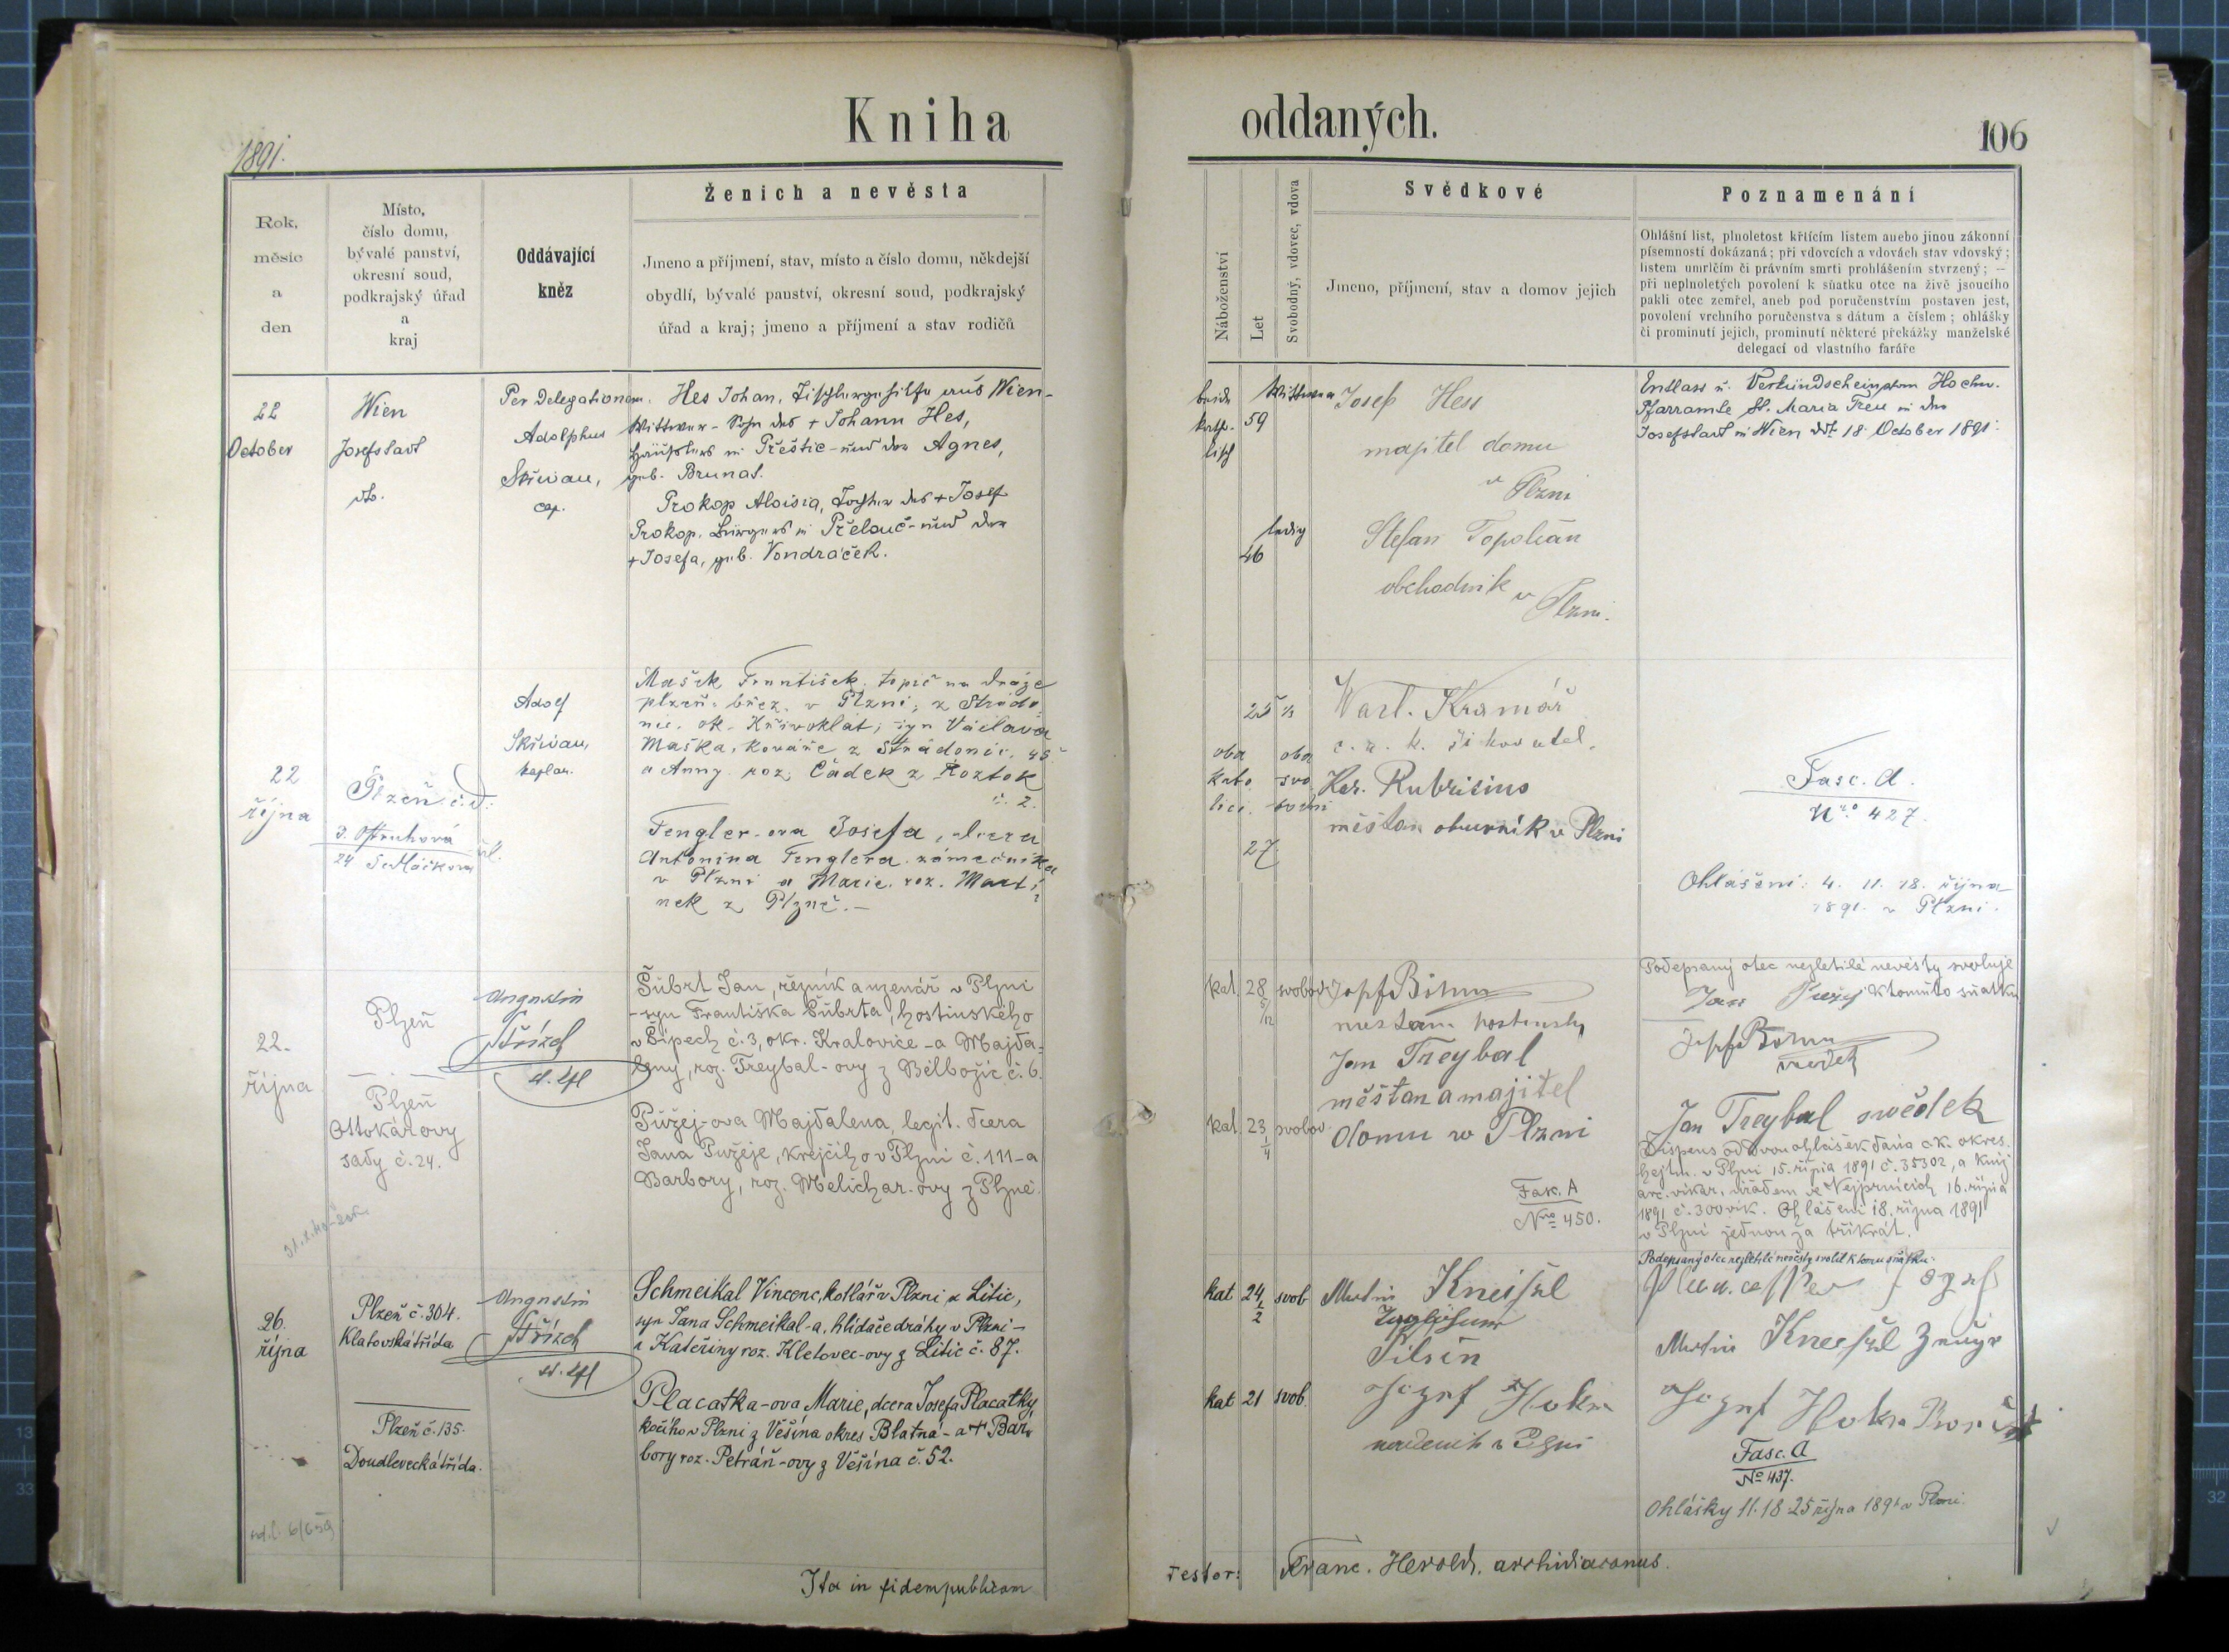 1891.
Kniha
oddaných.
106
Rok,
měsíc
a
den
Místo,
číslo domu,
bývalé panství,
okresní soud,
podkrajský úřad
a
kraj
Oddávající
kněz
Ženich a nevěsta
Jmeno a příjmení, stav, místo a číslo domu, někdejší
obydlí, bývalé panství, okresní soud, podkrajský
úřad a kraj; jmeno a příjmení a stav rodičů
Náboženství
Let
Svobodný, vdovec, vdova
Svědkové
Jmeno, příjmení, stav a domov jejich
Poznamenání
Ohlášní list, plnoletost křticím listem anebo jinou zákonní
písemností dokázaná; při vdovcích a vdovách stav vdovský;
listem umrlčím či právním smrti prohlášením stvrzený; —
při neplnoletých povolení k sňatku otce na živě jsoucího
pakli otec zemřel, aneb pod poručenstvím postaven jest,
povolení vrchního poručenstva s dátum a číslem; ohlášky
či prominutí jejich, prominutí některé překážky manželské
delegací od vlastního faráře
22
October
Wien
Josefstadt
dto.
Per Delegationem.
Adolphus
Skřivan,
cap.
Hes Johan, Tischlergehilfe aus Wien-
Wittwer - Sohn des + Johann Hes,
Häuslers in Přeštic - und der Agnes,
geb. Brunat.
Prokop Aloisia, Tochter des + Josef
Prokop, Bürgers in Přelouč - und der
+ Josefa, geb. Vondráček.
beide
katho-
lisch
Wittwer
59
ledig
46
Josef Hess
majitel domu
v Plzni
Stefan Topolian
obchodník v Plzni.
Entlass u. Verkündschein vom Hochw.
Pfarramte St. Maria Treu in der
Josefstadt in Wien ddt 18. October 1891.
22
října
Plzeň č. d.
3. Ostruhová
24 Sedláčkova ul.
Adolf
Skřivan,
kaplan.
Mašek František, topič na dráze
plzeň. břez. v Plzni; z Strado-
nic, ok. Křivoklát; syn Václava
Maška, kováře z Stradonic, 45
a Anny roz. Čádek z Roztok
č. 2.
Fengler-ova Josefa, dcera
Antonína Fenglera, zámečníka
v Plzni a Marie, roz. Marti-
nek z Plzně. —
oba
kato
lici.
25
27
oba
svo
bodni
Varl. Kramář
Kar. Rubricius
měšťan obuvník v Plzni
Fasc. A.
Nro 427.
Ohlášení: 4. 11. 18. října
1891. v Plzni.
22.
října
Plzeň
Plzeň
Ottokárovy
sady č. 24.
Augustin
Střízek
Šúbrt Jan, řezník a uzenář v Plzni
- syn Františka Šúbrta, hostinského
v Šípech č. 3, okr. Kralovice - a Majda-
leny, roz. Treybal-ovy z Bělbožic č. 6.
Půžej-ova Majdalena, legit. dcera
Jana Půžeje, krejčího v Plzni č. 111 - a
Barbory, roz. Melichar-ovy z Plzně.
kat. 28 5/12 svobod.
kat. 23 1/4 svobod.
Josef Böhm
Jan Treybal
měšťan a majitel
domu v Plzni
Fak. A
Nro 450.
Podepsaný otec nezletilé nevěsty svoluje
Jan Půžej k tomuto sňatku
Josef Böhm
svědek
Jan Treybal svědek
Dispens od dvou ohlášek dána c.k. okres.
hejtm. v Plzni 15. října 1891 č. 35302, a kníž.
arc. vikar. úřadem ve Nejprnicích 16. října
1891 č. 300 vik. Ohlášení 18. října 1891
v Plzni jednou za třikrát.
26.
října
Plzeň č. 304.
Klatovská třída
Plzeň č. 135.
Doudlevecká třída.
Augustin
Střízek
Schmeikal Vincenc, kotlář v Plzni z Litic,
syn Jana Schmeikal-a, hlídače dráhy v Plzni -
a Kateřiny roz. Kletovec-ovy z Litic č. 87.
Placatka-ova Marie, dcera Josefa Placatky
kočího v Plzni z Věšína okres Blatná - a + Bar-
bory roz. Petráň-ovy z Věšína č. 52.
kat 24 1/2 svob
kat 21 svob.
Martin Kneissl
Pilsen
Jozef Hokr
Podepsaný otec nezletilé nevěsty svolil k tomu sňatku:
Martin Kneissl Zeuge
Jozef Hokr
Fasc. A
No 437.
Ohlášky 11. 18 25 října 1891 v Plzni.
Ita in fidem publicam
Testor: Franc. Herold, archidiaconus.